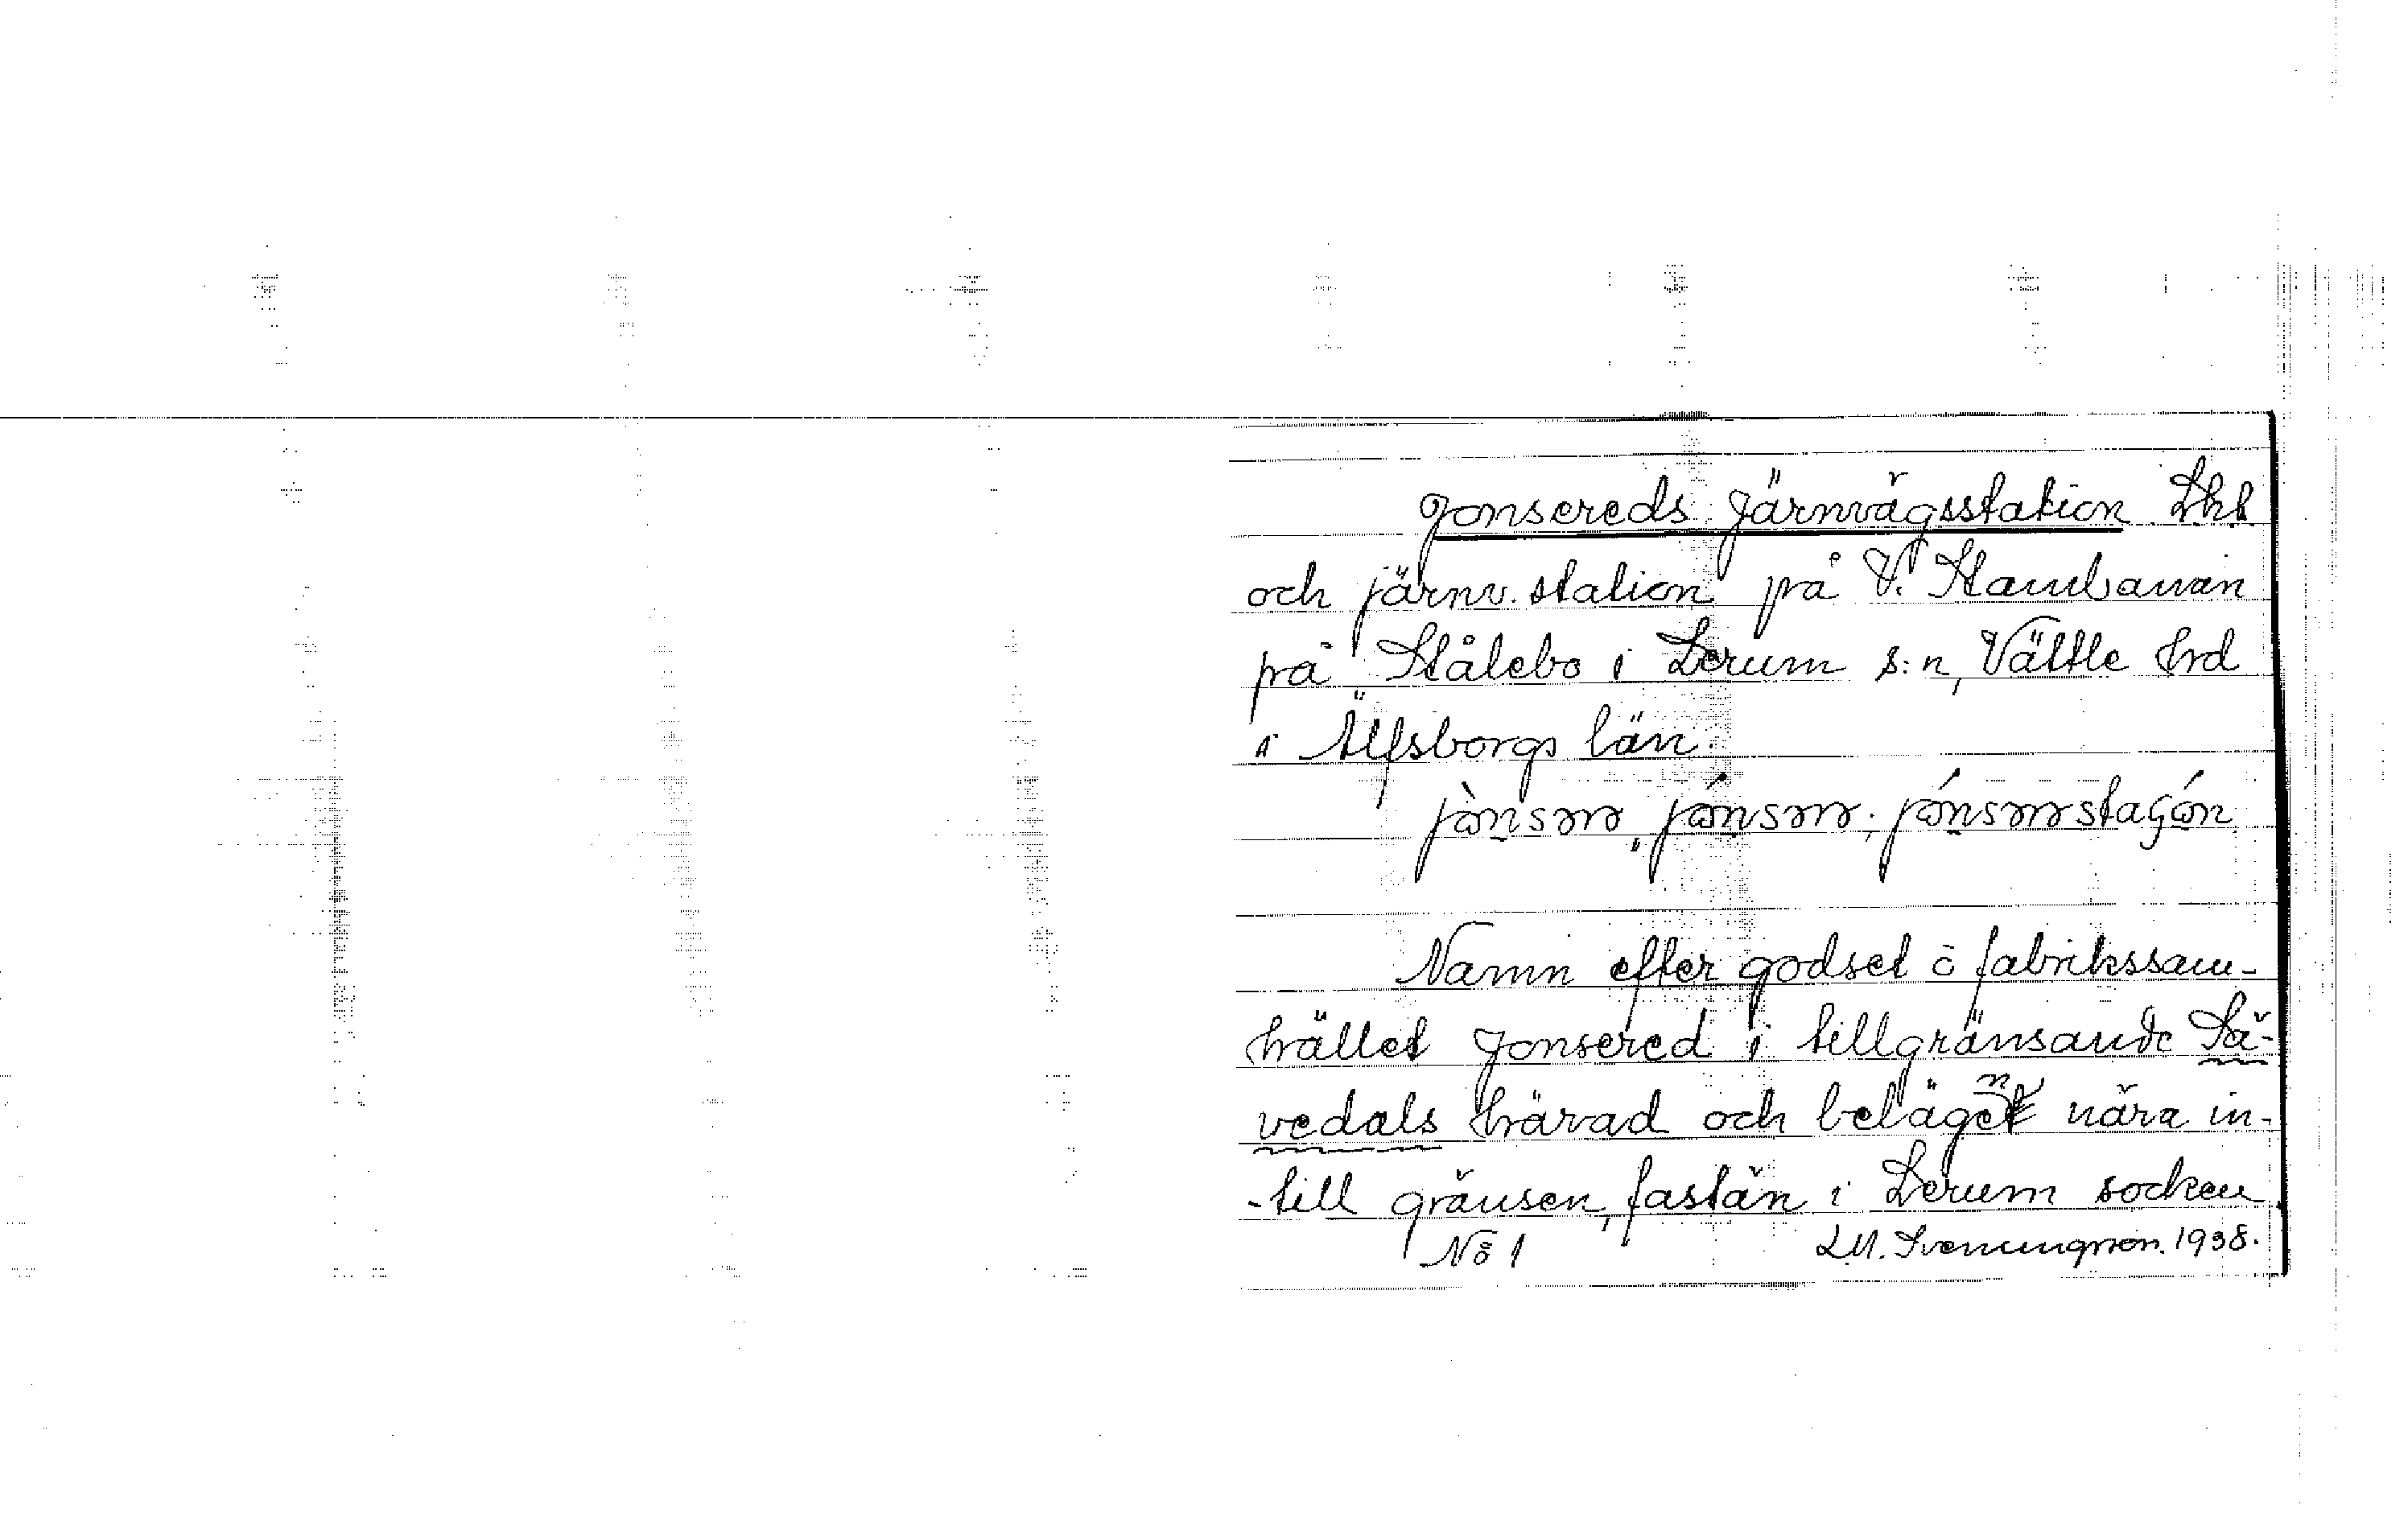 Jonsereds Järnvägsstation Lhl
och järnv. station på V. Stambanan
på Stålebo i Lerum s:n, Vättle hrd
i Älfsborgs län.
Namn efter godset o fabrikssam-
hället Jonsered i tillgränsande Sä-
vedals härad och belägen nära in-
-till gränsen, fastän i Lerum socken.
No 1 LM. Svenungsson. 1938.